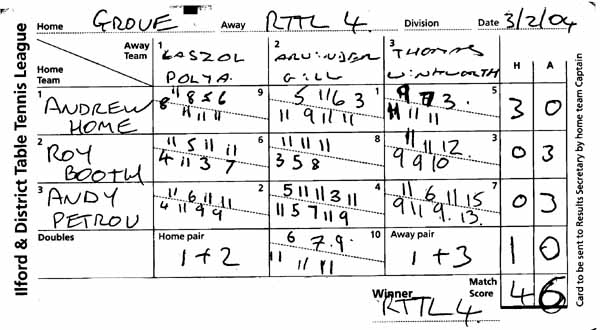 Ilford & District Table Tennis League
Home GROVE Away RTTL 4. Division Date 3/2/04
Away Team 1 LASZOL POLYA 2 ARVINDER GILL 3 THOMAS WINTWORTH H A
Home Team
1 ANDREW HOME 9 1 5 3 0
8 8 5 6 5 11 6 3 9 7 3
11 11 11 11 9 11 11 11 11 11
2 ROY BOOTH 6 8 3 0 3
11 5 11 11 11 11 11 11 11 12
4 11 3 7 3 5 8 9 9 10
3 ANDY PETROU 2 4 7 0 3
11 6 11 11 5 11 11 3 11 11 6 11 15
4 11 9 9 11 5 7 11 9 9 11 9 13
Doubles Home pair 1+2 10 Away pair 1+3 1 0
6 7 9
11 11 11
Winner RTTL 4. Match Score 4 6
Card to be sent to Results Secretary by home team Captain